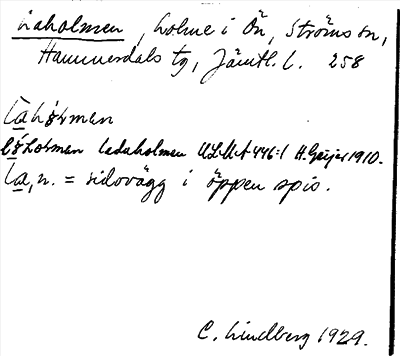 Laholmen, holme i Ön, Ströms sn,
Hammerdals tg, Jämtl. l. 258
Lahó̤rman
ladaholmen ULMA 446:1 H. Geijer 1910.
La, n. = sidovägg i öppen spis.
C. Lindberg 1929.